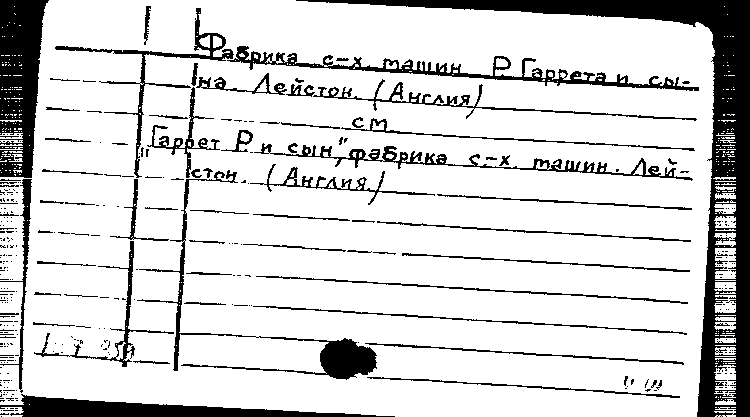 Фабрика с-х. машин Р. Гаррета и сы-
на. Лейстон. (Англия)
см.
"Гаррет Р. и сын", фабрика с.-х. машин. Лей-
стон. (Англия.)